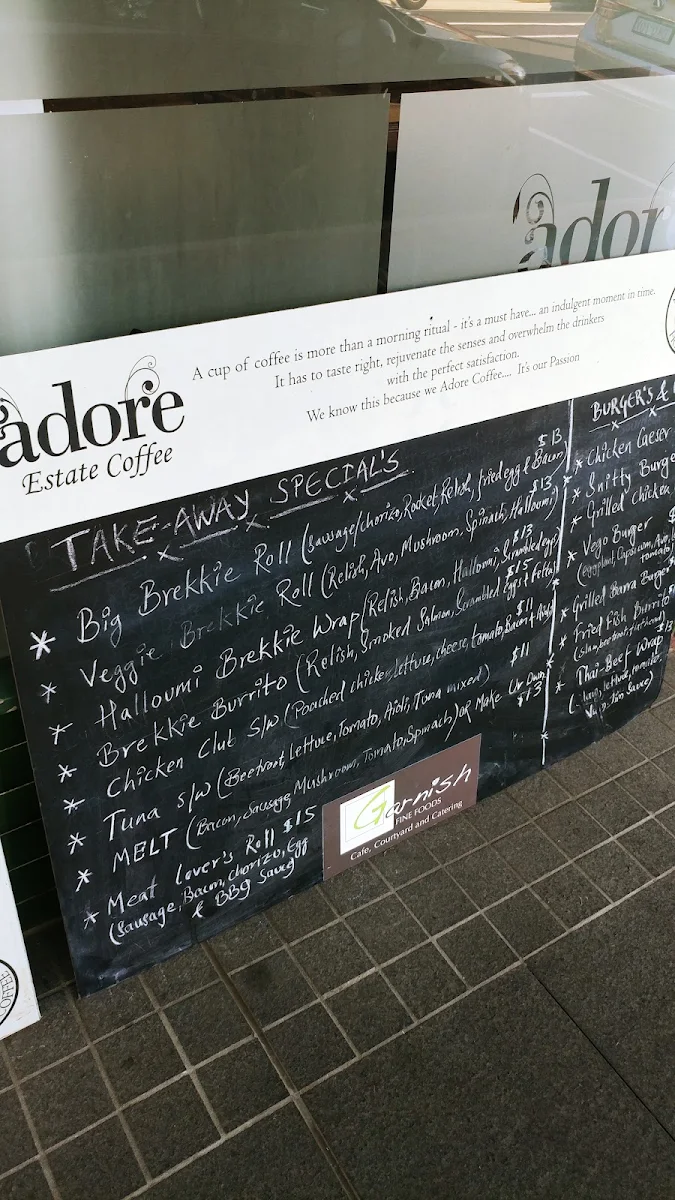 ador
A cup of coffee is more than a morning ritual - it's a must have... an indulgent moment in time.
It has to taste right, rejuvenate the senses and overwhelm the drinkers
with the perfect satisfaction.
We know this because we Adore Coffee.... It's our Passion
adore
Estate Coffee
TAKE-AWAY SPECIAL'S
* Big Brekkie Roll (Sausage/chorizo, Rocket, Relish, fried egg & Bacon) $13
* Veggie Brekkie Roll (Relish, Avo, Mushroom, Spinach, Halloumi) $13
* Halloumi Brekkie Wrap (Relish, Bacon, Halloumi, Scrambled egg) $13
* Brekkie Burrito (Relish, Smoked Salmon, Scrambled Eggs & Fetta) $15
* Chicken Club S/W (Poached chicken, lettuce, cheese, tomato, Bacon & Aioli) $11
* Tuna S/W (Beetroot, Lettuce, Tomato, Aioli, Tuna mixed) $11
* MELT (Bacon, Sausage, Mushroom, Tomato, Spinach) or Make Ur Own $13
* Meat Lover's Roll $15
(Sausage, Bacon, Chorizo, Egg
& BBQ Sauce)
BURGER'S &
* Chicken Caeser
* Snitty Burge
* Grilled Chicken
* Vego Burger
(eggplant, Capsicum, Avo,
tomato)
* Grilled Barra Burger
* Fried Fish Burrito
* Thai Beef Wrap $13
Garnish
FINE FOODS
Cafe, Courtyard and Catering
COFFEE